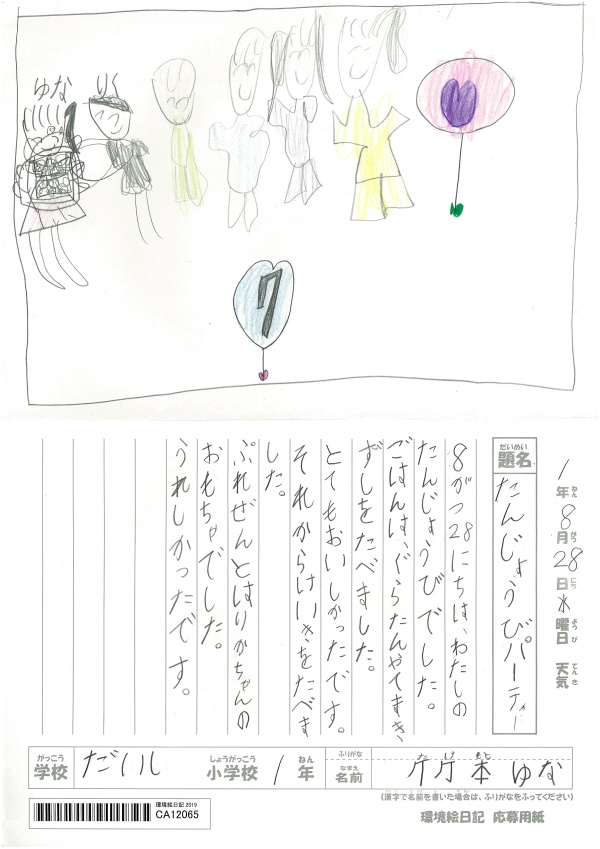 ゆな
りく
7
1年8月28日水曜日 天気
ねん がつ にち ようび てんき
だいめい
題名 たんじょうびパーティー
8がつ28にちは、わたしの
たんじょうびでした。
ごはんは、ぐらたんやてまき、
ずしをたべました。
とてもおいしかったです。
それからけいきをたべま
した。
ぷれぜんとはりかちゃんの
おもちゃでした。
うれしかったです。
がっこう しょうがっこう ねん ふりがな たけ もと
学校 小学校 1年
なまえ
名前 竹本 ゆな
(漢字で名前を書いた場合は、ふりがなをふってください)
環境絵日記2019
CA12065
環境絵日記 応募用紙